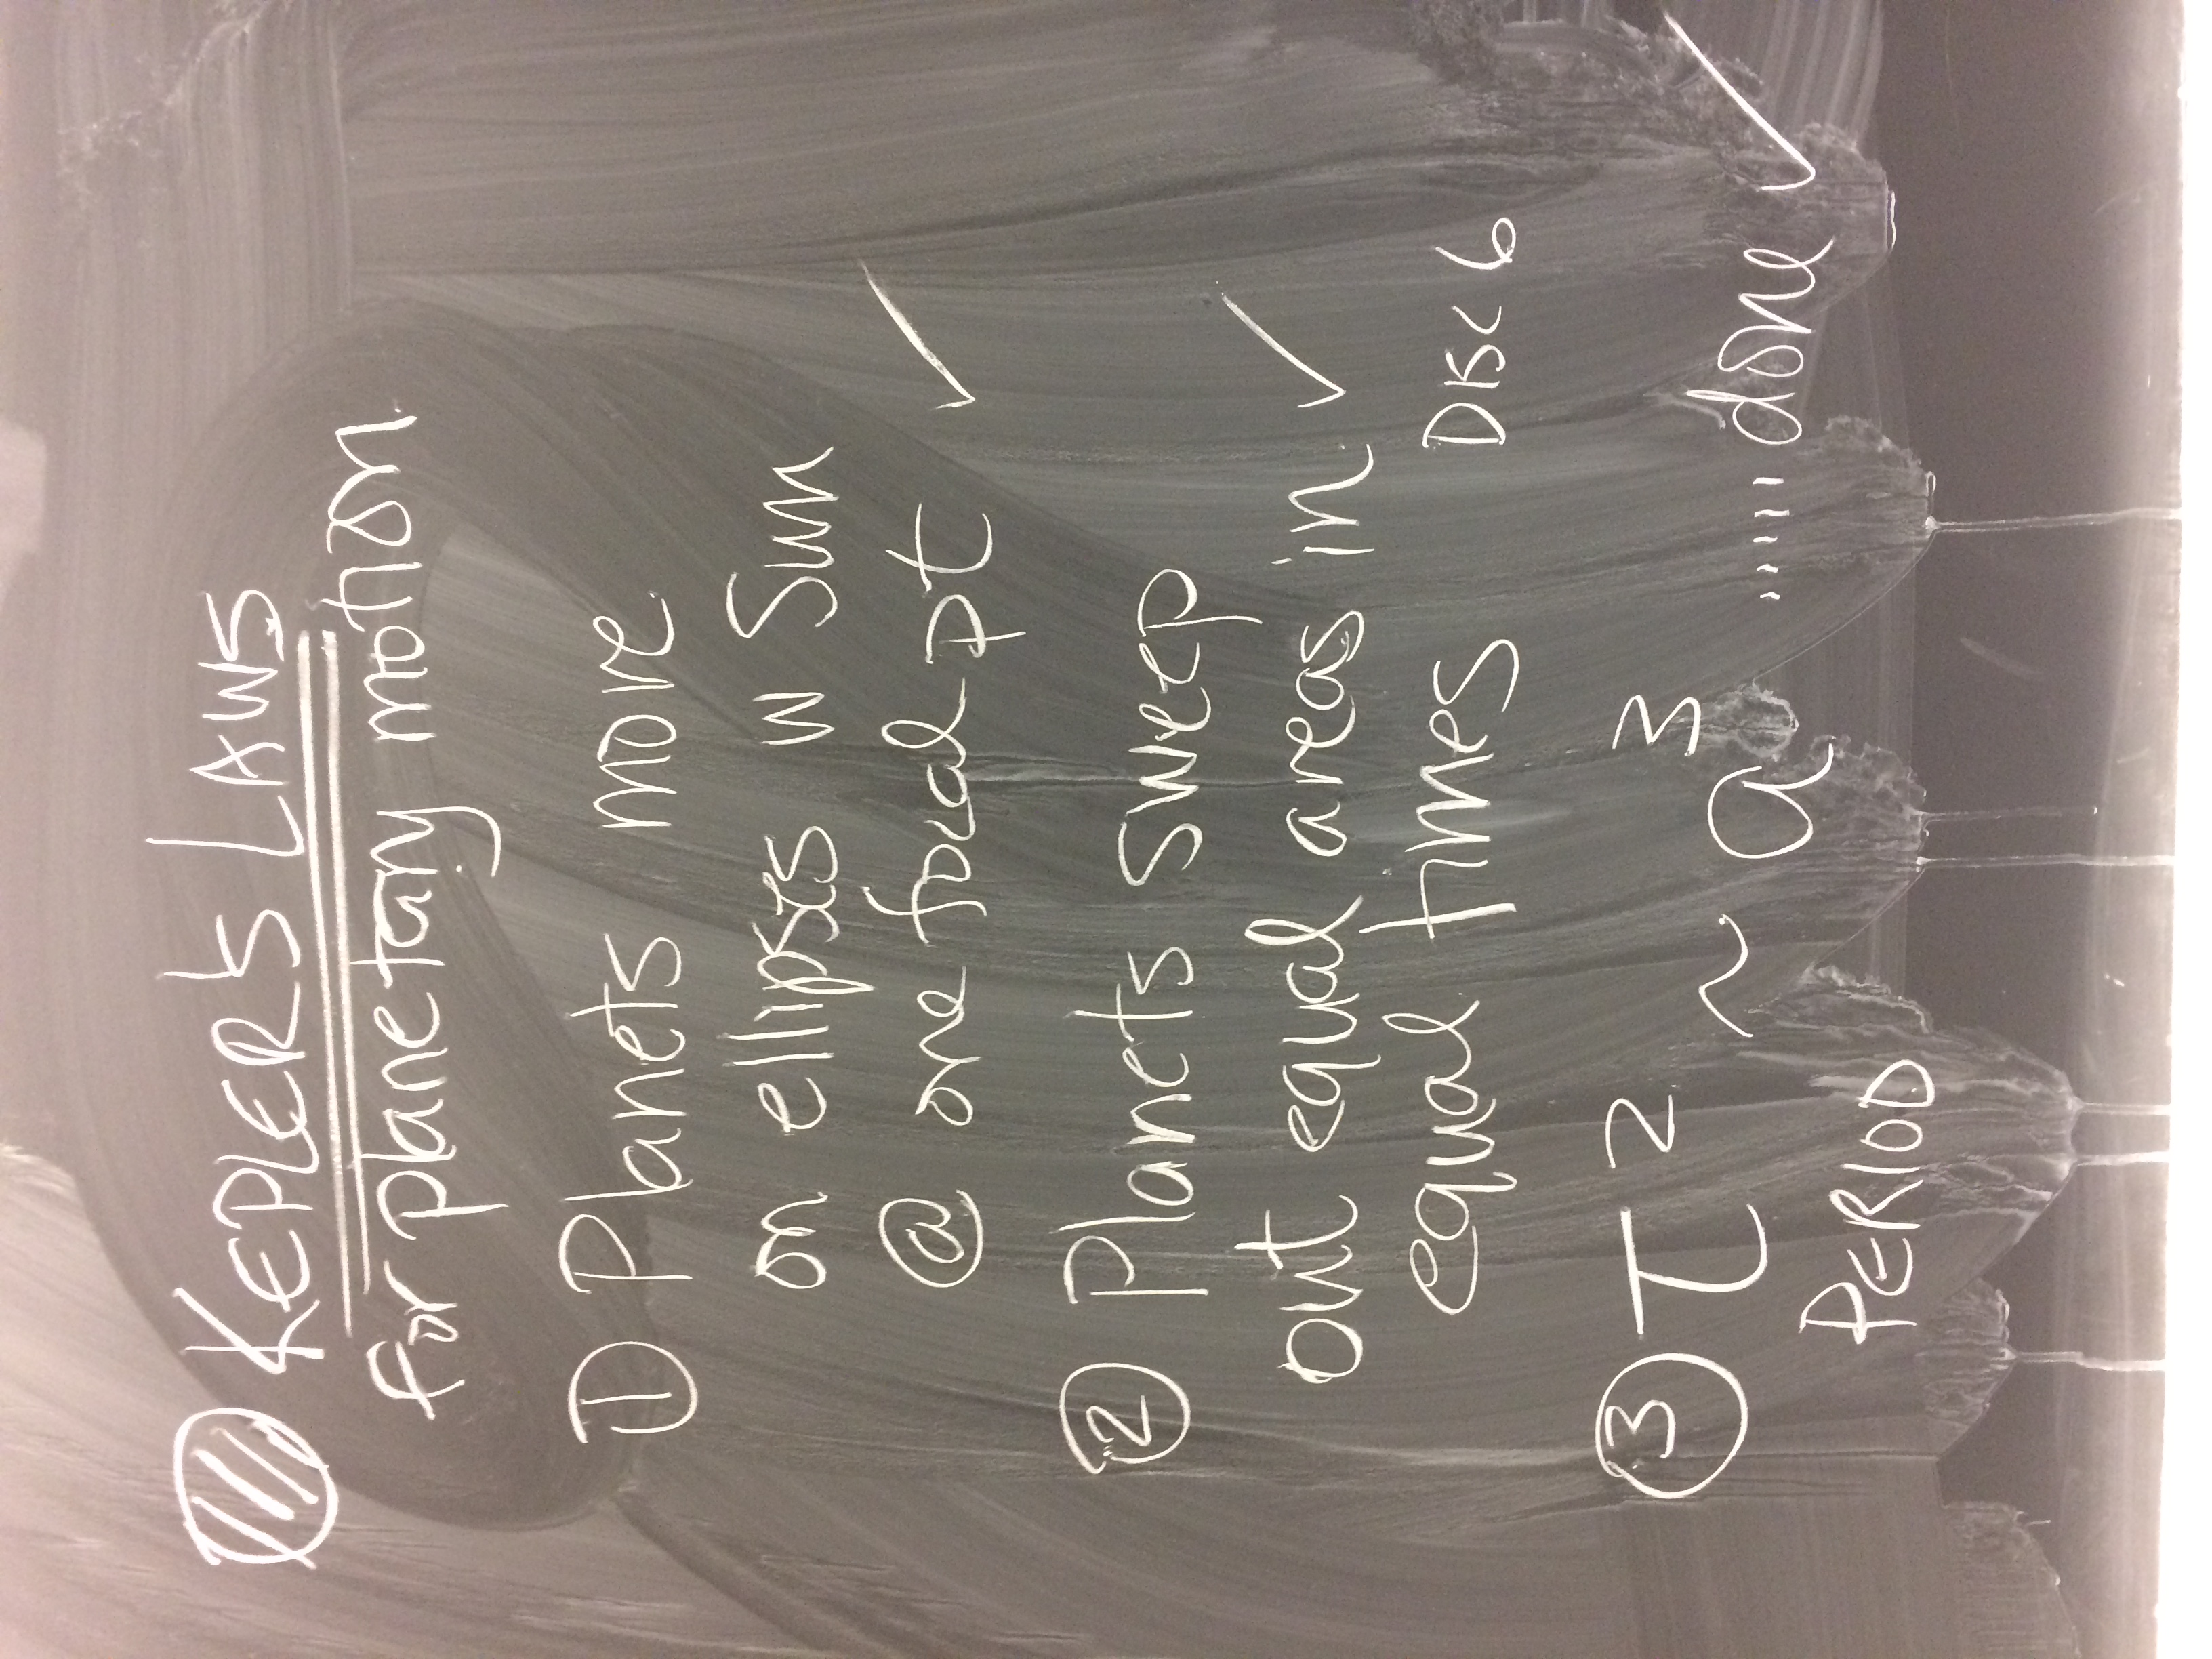 III KEPLER'S LAWS
for planetary motion
① Planets move
on ellipses w Sun
@ one focal pt ✓
② Planets sweep
out equal areas in ✓
equal times DISC 6
③ T² ~ a³ ..... done ✓
PERIOD